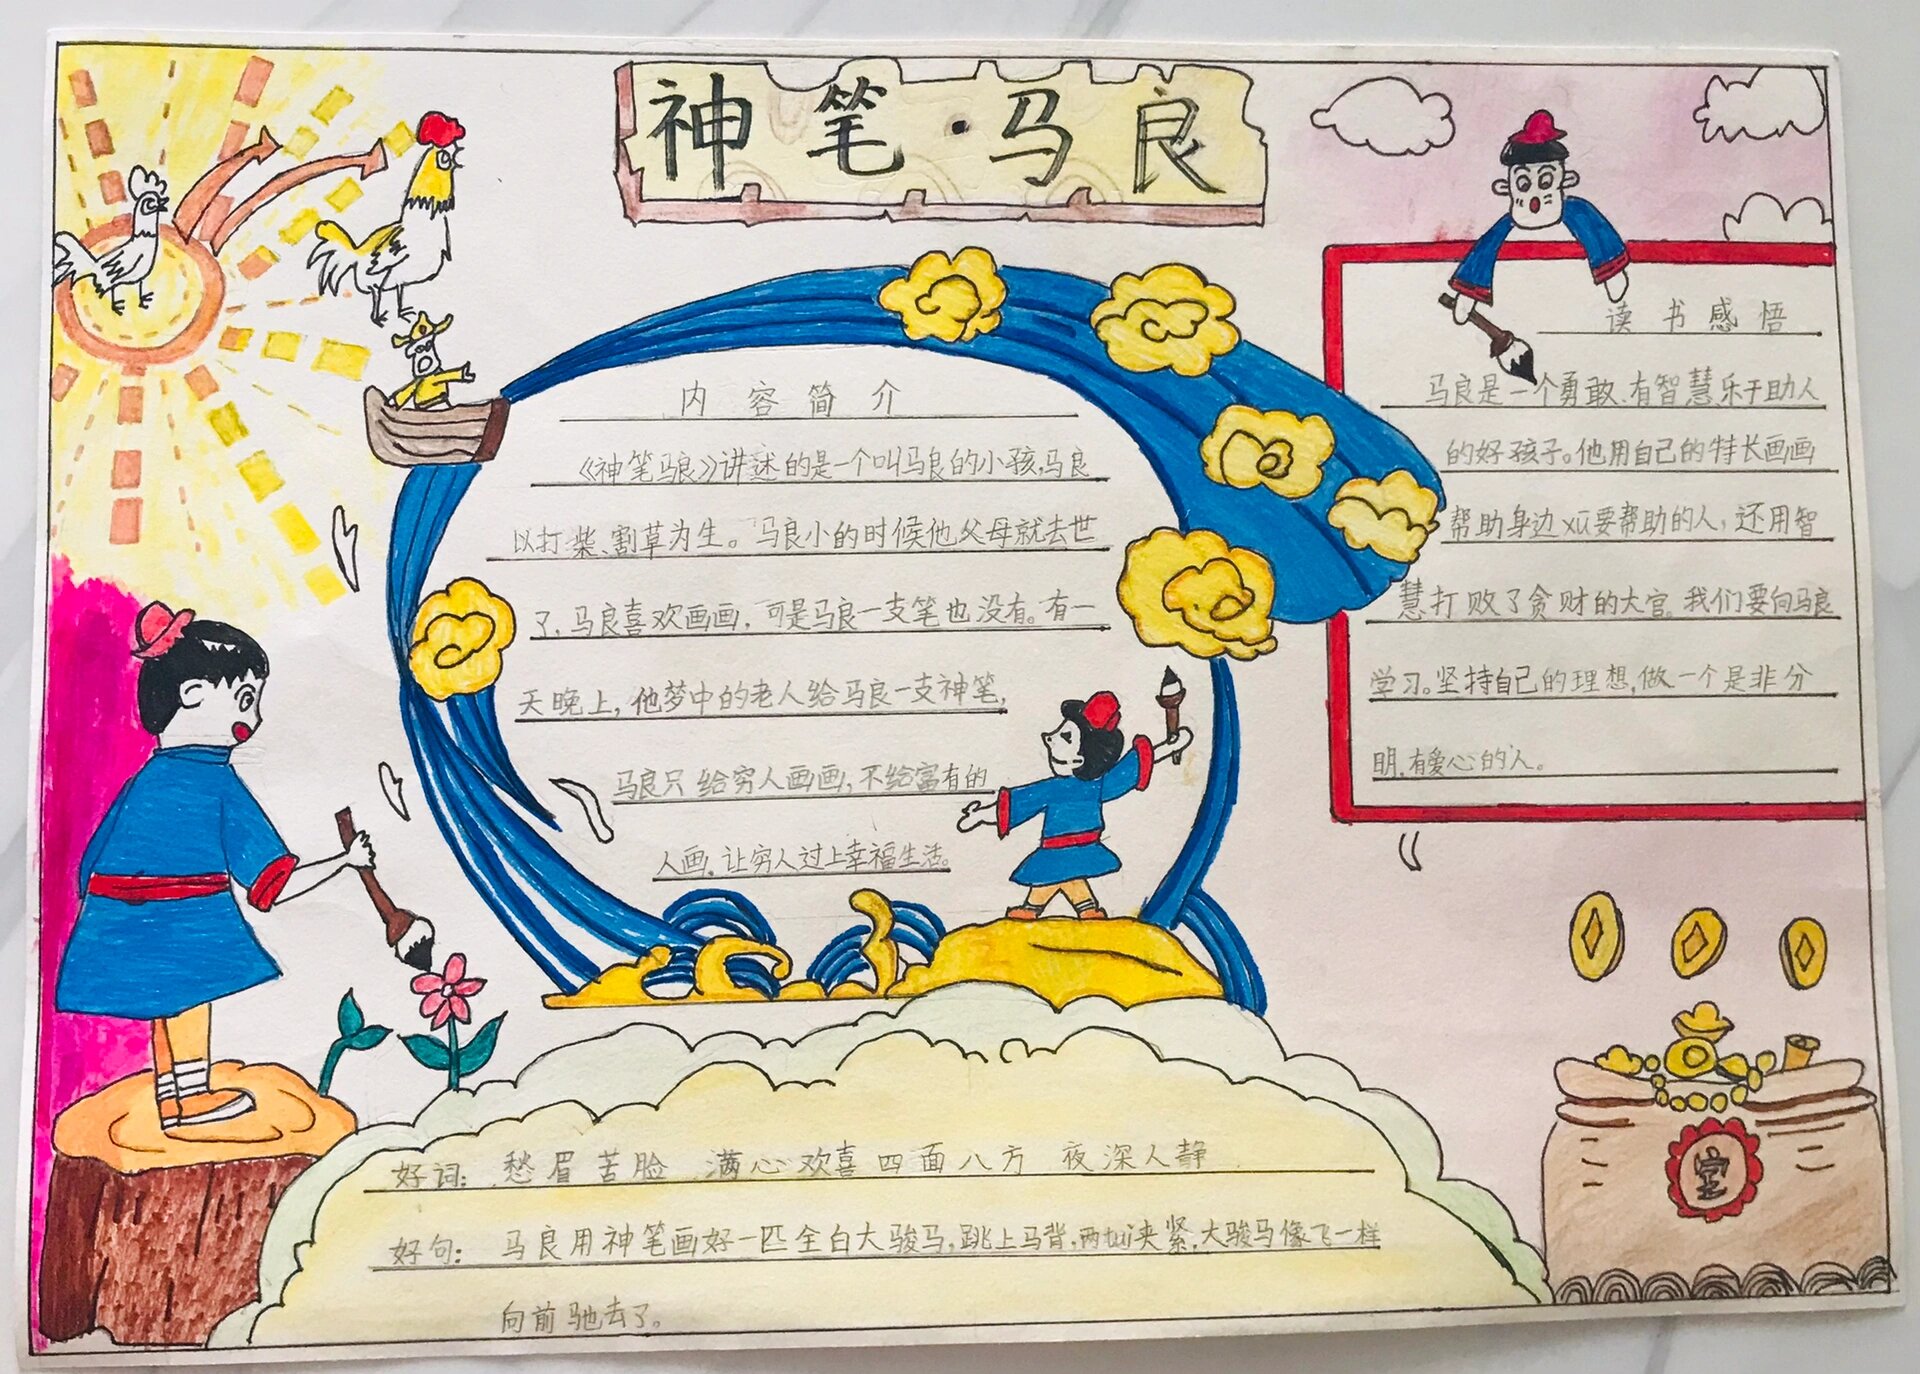 神笔·马良
内容简介
《神笔马良》讲述的是一个叫马良的小孩,马良
以打柴、割草为生。马良小的时候他父母就去世
了,马良喜欢画画,可是马良一支笔也没有。有一
天晚上,他梦中的老人给马良一支神笔,
马良只给穷人画画,不给富有的
人画,让穷人过上幸福生活。
读书感悟
马良是一个勇敢、有智慧、乐于助人
的好孩子。他用自己的特长画画
帮助身边xū要帮助的人,还用智
慧打败了贪财的大官。我们要向马良
学习。坚持自己的理想,做一个是非分
明,有爱心的人。
好词:愁眉苦脸 满心欢喜 四面八方 夜深人静
好句:马良用神笔画好一匹全白大骏马,跳上马背,两tuǐ夹紧,大骏马像飞一样
向前驰去了。